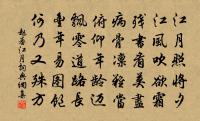 江月照將夕
江風吹欲霜
殘書看已盡
病骨凜難當
俯仰年齡邁
飄零道路長
豐年易圖飽
何乃又殊方
趙蕃江月詞典網集